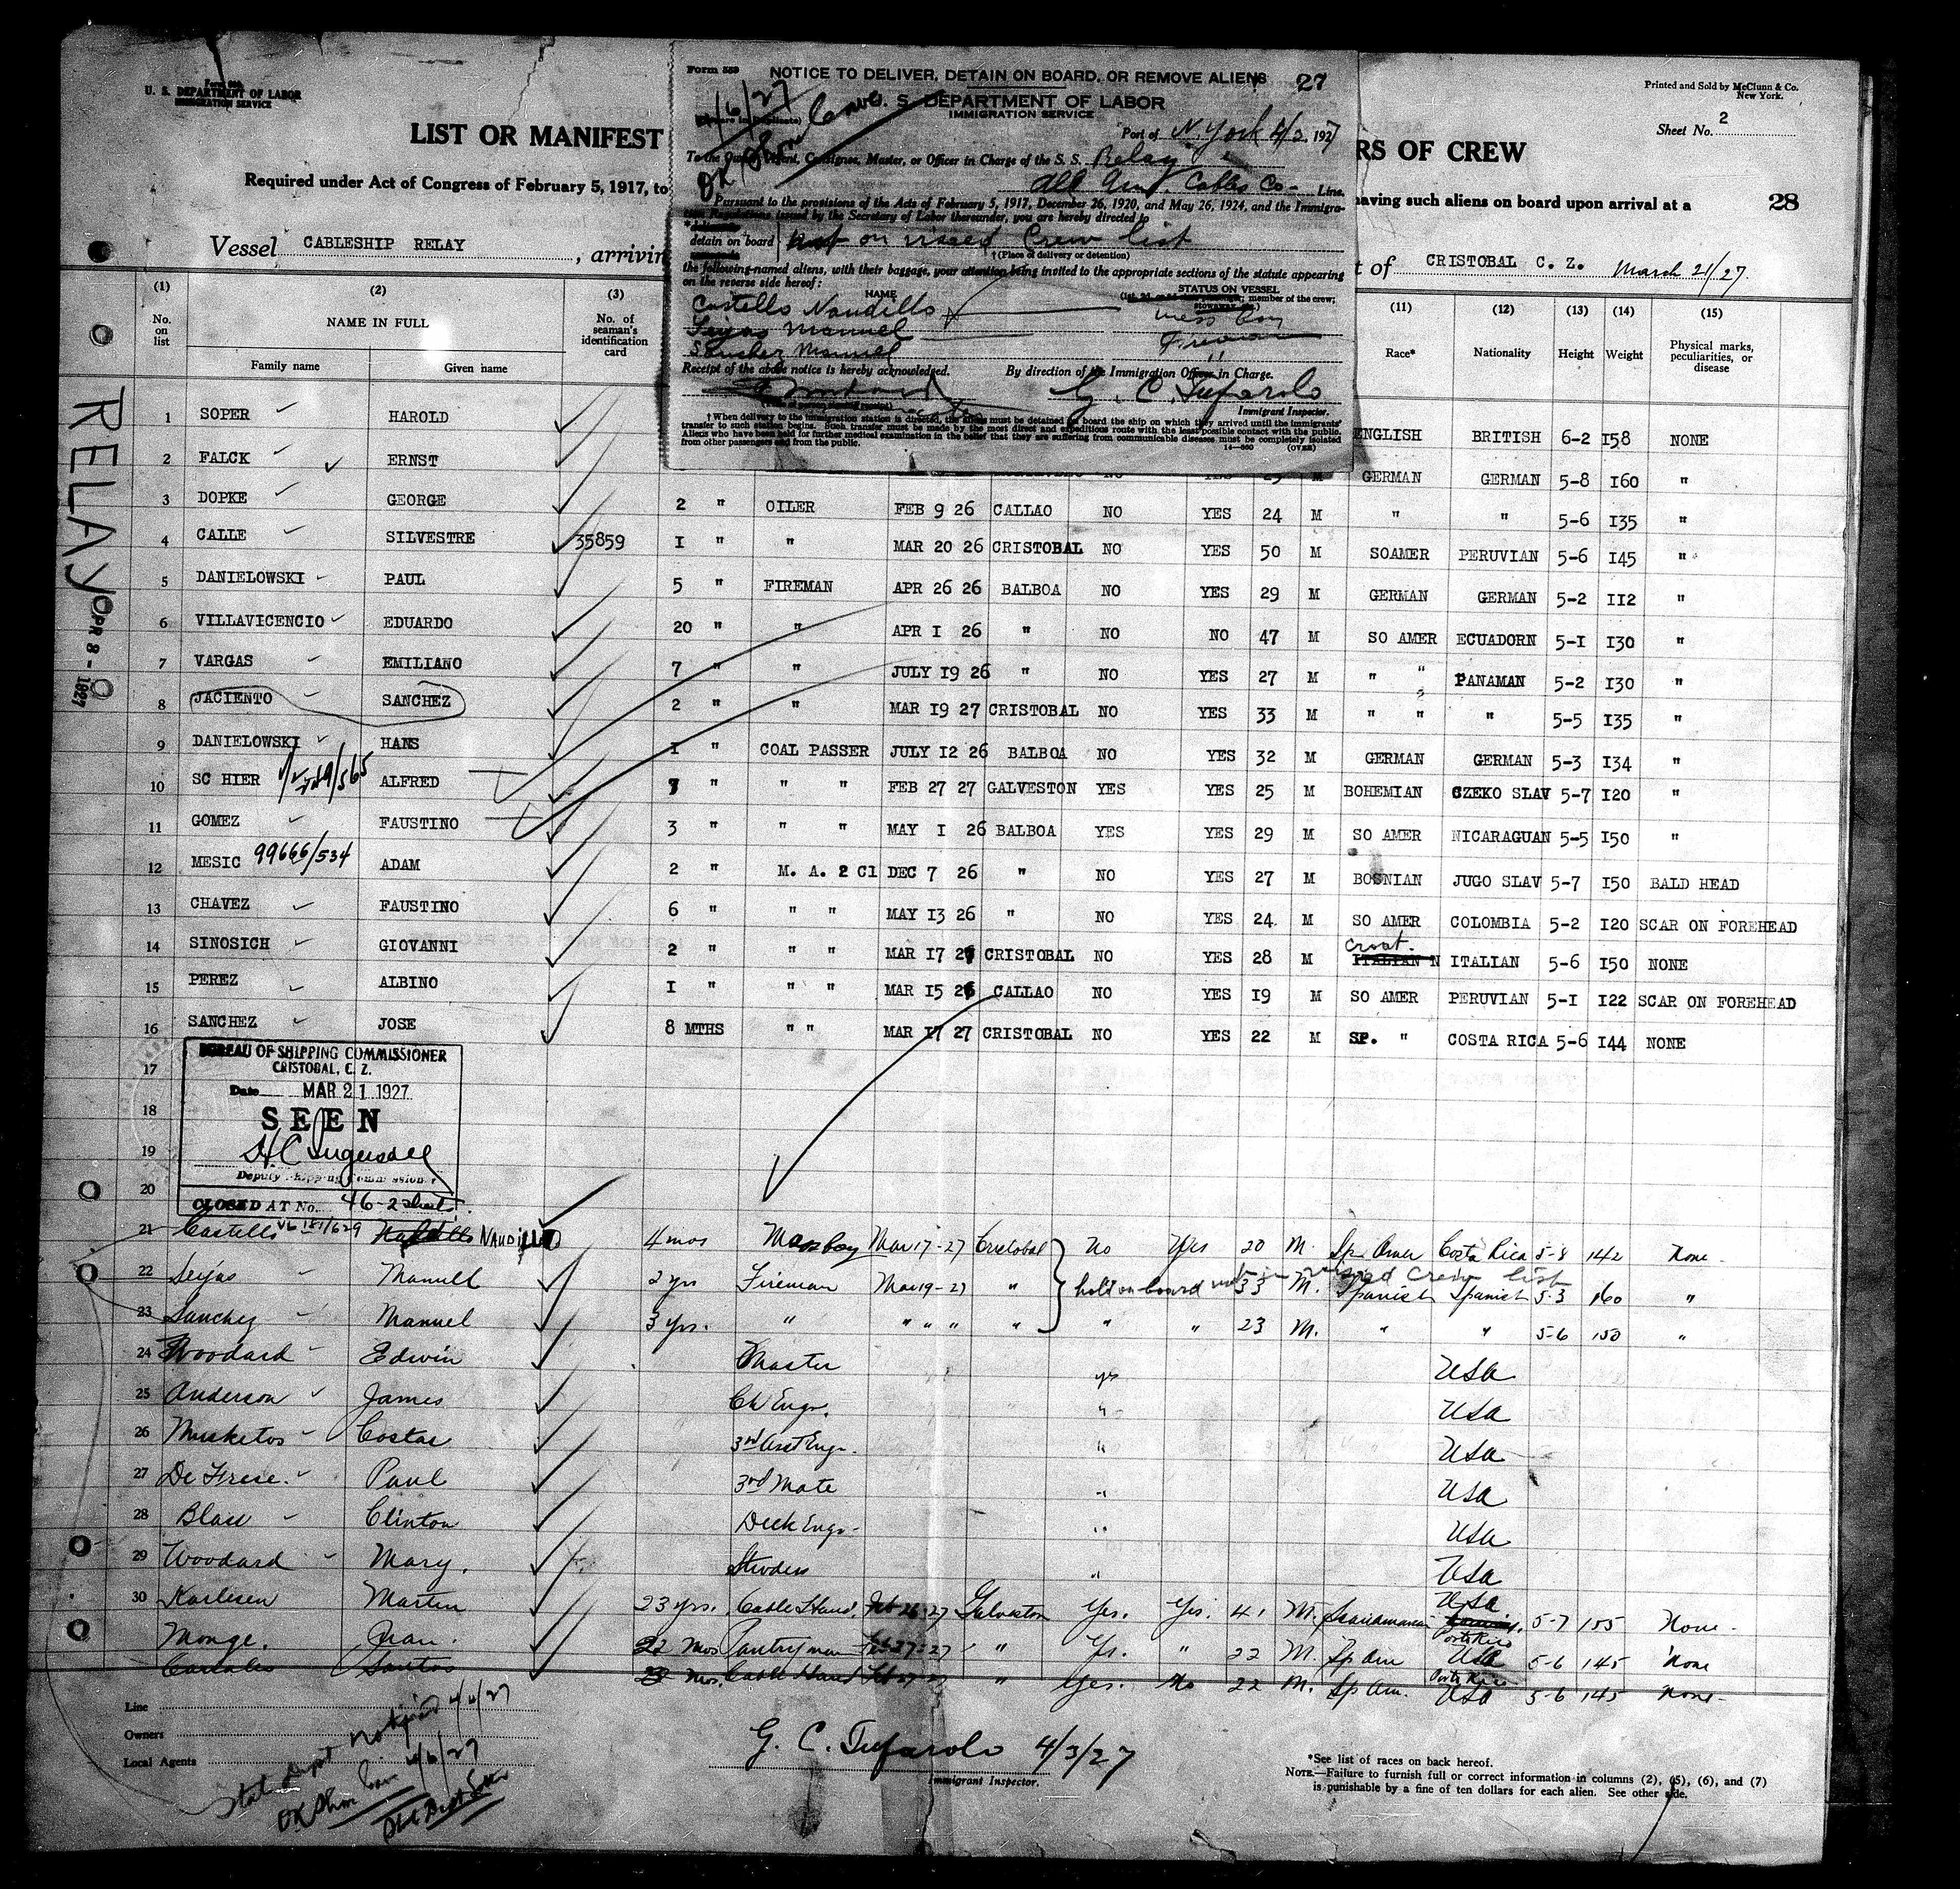 Form 689
U. S. DEPARTMENT OF LABOR
IMMIGRATION SERVICE
Printed and Sold by McClunn & Co.
New York.
Sheet No. 2
LIST OR MANIFEST
RS OF CREW
Required under Act of Congress of February 5, 1917, to
having such aliens on board upon arrival at a
28
Vessel CABLESHIP RELAY, arrivin
t of CRISTOBAL C. Z. March 21/27.
Form 550
NOTICE TO DELIVER, DETAIN ON BOARD, OR REMOVE ALIENS 27
U. S. DEPARTMENT OF LABOR
IMMIGRATION SERVICE
Port of N. York 4/3, 1927
To the Owner, Agent, Consignee, Master, or Officer in Charge of the S. S. Relay
All Am. Cables Co- Line.
Pursuant to the provisions of the Acts of February 5, 1917, December 26, 1920, and May 26, 1924, and the Immigra-
tion Regulations issued by the Secretary of Labor thereunder, you are hereby directed to
detain on board not on visaed Crew list
† (Place of delivery or detention)
the following-named aliens, with their baggage, your attention being invited to the appropriate sections of the statute appearing
on the reverse side hereof:
NAME
STATUS ON VESSEL
Castello Naudillo mess Boy
Seijas Manuel Fireman
Sanchez Manuel "
Receipt of the above notice is hereby acknowledged.
By direction of the Immigration Officer in Charge.
G. C. Tufarolo
Immigrant Inspector.
† When delivery to the immigration station is directed, the aliens must be detained on board the ship on which they arrived until the immigrants'
transfer to such station begins. Such transfer must be made by the most direct and expeditious route with the least possible contact with the public.
Aliens who have been held for further medical examination in the belief that they are suffering from communicable diseases must be completely isolated
from other passengers and from the public.
14—660 (OVER)
(1) (2) (3) (11) (12) (13) (14) (15)
No. on list
NAME IN FULL
Family name
Given name
No. of seaman's identification card
Race*
Nationality
Height
Weight
Physical marks, peculiarities, or disease
RELAY
APR 8 - 1927
1 SOPER HAROLD ENGLISH BRITISH 6-2 158 NONE
2 FALCK ERNST GERMAN GERMAN 5-8 160 "
3 DOPKE GEORGE 2 " OILER FEB 9 26 CALLAO NO YES 24 M " " 5-6 135 "
4 CALLE SILVESTRE 35859 I " " MAR 20 26 CRISTOBAL NO YES 50 M SOAMER PERUVIAN 5-6 145 "
5 DANIELOWSKI PAUL 5 " FIREMAN APR 26 26 BALBOA NO YES 29 M GERMAN GERMAN 5-2 112 "
6 VILLAVICENCIO EDUARDO 20 " " APR I 26 " NO NO 47 M SO AMER ECUADORN 5-I 130 "
7 VARGAS EMILIANO 7 " " JULY 19 26 " NO YES 27 M " " PANAMAN 5-2 130 "
8 JACIENTO SANCHEZ 2 " " MAR 19 27 CRISTOBAL NO YES 33 M " " " 5-5 135 "
9 DANIELOWSKI HANS I " COAL PASSER JULY 12 26 BALBOA NO YES 32 M GERMAN GERMAN 5-3 134 "
10 SC HIER ALFRED " " " FEB 27 27 GALVESTON YES YES 25 M BOHEMIAN CZEKO SLAV 5-7 120 "
11 GOMEZ FAUSTINO 3 " " " MAY I 26 BALBOA YES YES 29 M SO AMER NICARAGUAN 5-5 150 "
12 MESIC 99666/534 ADAM 2 " M. A. 2 Cl DEC 7 26 " NO YES 27 M BOSNIAN JUGO SLAV 5-7 150 BALD HEAD
13 CHAVEZ FAUSTINO 6 " " " MAY 13 26 " NO YES 24 M SO AMER COLOMBIA 5-2 120 SCAR ON FOREHEAD
14 SINOSICH GIOVANNI 2 " " " MAR 17 27 CRISTOBAL NO YES 28 M Croat. ITALIAN N ITALIAN 5-6 150 NONE
15 PEREZ ALBINO I " " " MAR 15 26 CALLAO NO YES 19 M SO AMER PERUVIAN 5-I 122 SCAR ON FOREHEAD
16 SANCHEZ JOSE 8 MTHS " " MAR 17 27 CRISTOBAL NO YES 22 M SP. " COSTA RICA 5-6 144 NONE
17
18
19
20
BUREAU OF SHIPPING COMMISSIONER
CRISTOBAL, C. Z.
Date MAR 21 1927
SEEN
Deputy Shipping Commissioner
CLOSED AT No. 46-2 sheet.
21 Castello NAUDILLO 4 mos Messboy Mar 17-27 Cristobal No Yes 20 M. Sp Amer Costa Rica 5-8 142 None-
22 Seijas Manuel 2 yrs Fireman Mar 19-27 " hold on board not on visaed crew list 33 M. Spanish Spanish 5-3 160 "
23 Sanchez Manuel 3 yrs. " " " " " " " 23 M. " " 5-6 150 "
24 Woodard Edwin Master yes USA
25 Anderson James Ch Engr. " USA
26 Musketos Costas 3rd Asst Engr. " USA
27 De Frese Paul 3rd Mate " USA
28 Blair Clinton Deck Engr- " USA
29 Woodard Mary. Stwdess " USA
30 Karlesen Martin 23 yrs. Cable Hand. Feb 26-27 Galveston Yes. Yes. 41 M. Scandinavian USA 5-7 155 None-
Monge. Juan. 22 mos Pantryman Feb 27-27 " Yes. " 22 M. Sp Am Porto Rico USA 5-6 145 None
Canales Santos mos. Cable Hand Feb 27-27 " Yes. No 22 M. Sp Am. Porto Rico USA 5-6 145 None-
Line
Owners
Local Agents
State Dept Notified 4/4/27
G. C. Tufarolo 4/3/27
Immigrant Inspector.
*See list of races on back hereof.
NOTE.—Failure to furnish full or correct information in columns (2), (5), (6), and (7)
is punishable by a fine of ten dollars for each alien. See other side.